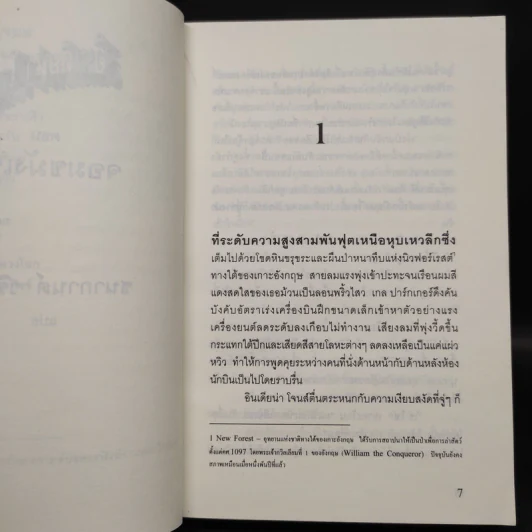 1
ที่ระดับความสูงสามพันฟุตเหนือหุบเหวลึกซึ่ง
เต็มไปด้วยโขดหินขรุขระและผืนป่าหนาทึบแห่งนิวฟอร์เรสต์¹
ทางใต้ของเกาะอังกฤษ สายลมแรงพุ่งเข้าปะทะจนเรือนผมสี
แดงสดใสของเธอม้วนเป็นลอนพริ้วไสว เกล ปาร์กเกอร์ดึงคัน
บังคับอัตราเร่งเครื่องบินฝึกขนาดเล็กเข้าหาตัวอย่างแรง
เครื่องยนต์ลดระดับลงเกือบไม่ทำงาน เสียงลมที่พุ่งวี้ดขึ้น
กระแทกใต้ปีกและเสียดสีสายโลหะต่างๆ ลดลงเหลือเป็นแค่แผ่ว
หวิว ทำให้การพูดคุยระหว่างคนที่นั่งด้านหน้ากับด้านหลังห้อง
นักบินเป็นไปโดยราบรื่น
อินเดียน่า โจนส์ตื่นตระหนกกับความเงียบสงัดที่จู่ๆ ก็
1 New Forest – อุทยานแห่งชาติทางใต้ของเกาะอังกฤษ ได้รับการสถาปนาให้เป็นป่าเพื่อการล่าสัตว์
ตั้งแต่ศศ.1097 โดยพระเจ้าวิลเลียมที่ 1 ของอังกฤษ (William the Conqueror) ปัจจุบันยังคง
สภาพเหมือนเมื่อหนึ่งพันปีที่แล้ว
7